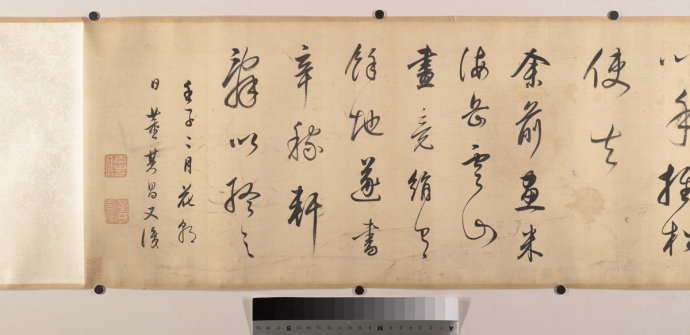 以手推松
使去
余前畫米
海岳雲山
畫竟絹有
餘地遂書
辛稼軒
詞以題之
壬子二月花朝
日董其昌又識